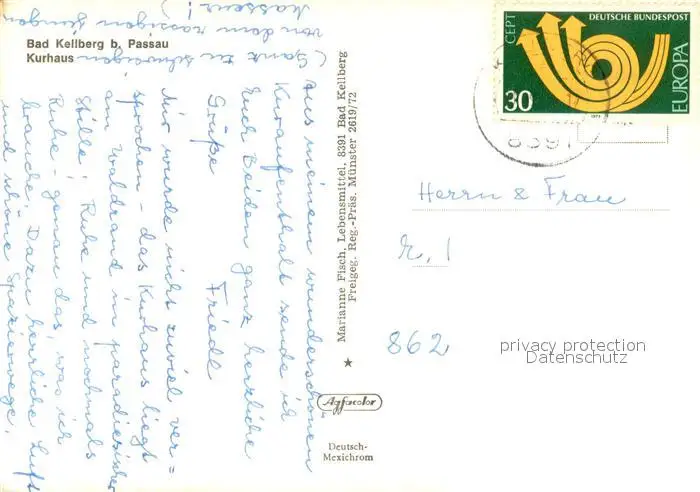 Bad Kellberg b. Passau
Kurhaus
Aus meinem wunderschönen
Kuraufenthalt sende ich
Euch Beiden ganz herzliche
Grüße Friedl
Mir wurde nicht zuviel ver=
sprochen - das Kurhaus liegt
am Waldrand in paradiesischer
Stille! Ruhe und nochmals
Ruhe - genau das, was ich
brauche. Dazu herrliche Luft
und schöne Spazierwege.
(Ganz zu schweigen
von dem rassigen jungen
Masseur!)
Marianne Fisch, Lebensmittel, 8391 Bad Kellberg
Freigeg. Reg.-Präs. Münster 2619/72
Agfacolor
Deutsch-
Mexichrom
CEPT
DEUTSCHE BUNDESPOST
EUROPA
30
1973
8391
Herrn & Frau
862
privacy protection
Datenschutz